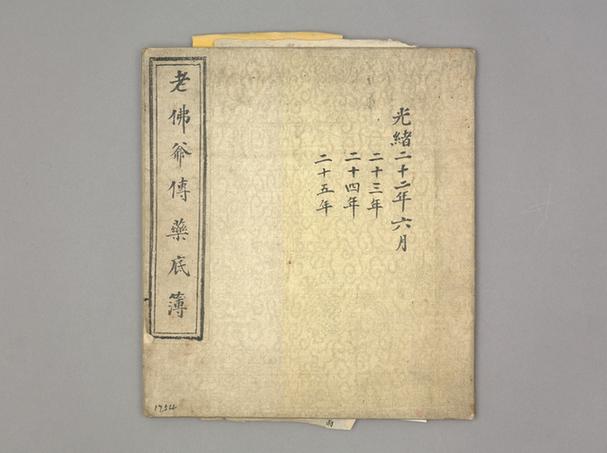 光緒二十二年六月
二十三年
二十四年
二十五年
老佛爺傳藥底簿
1754
而